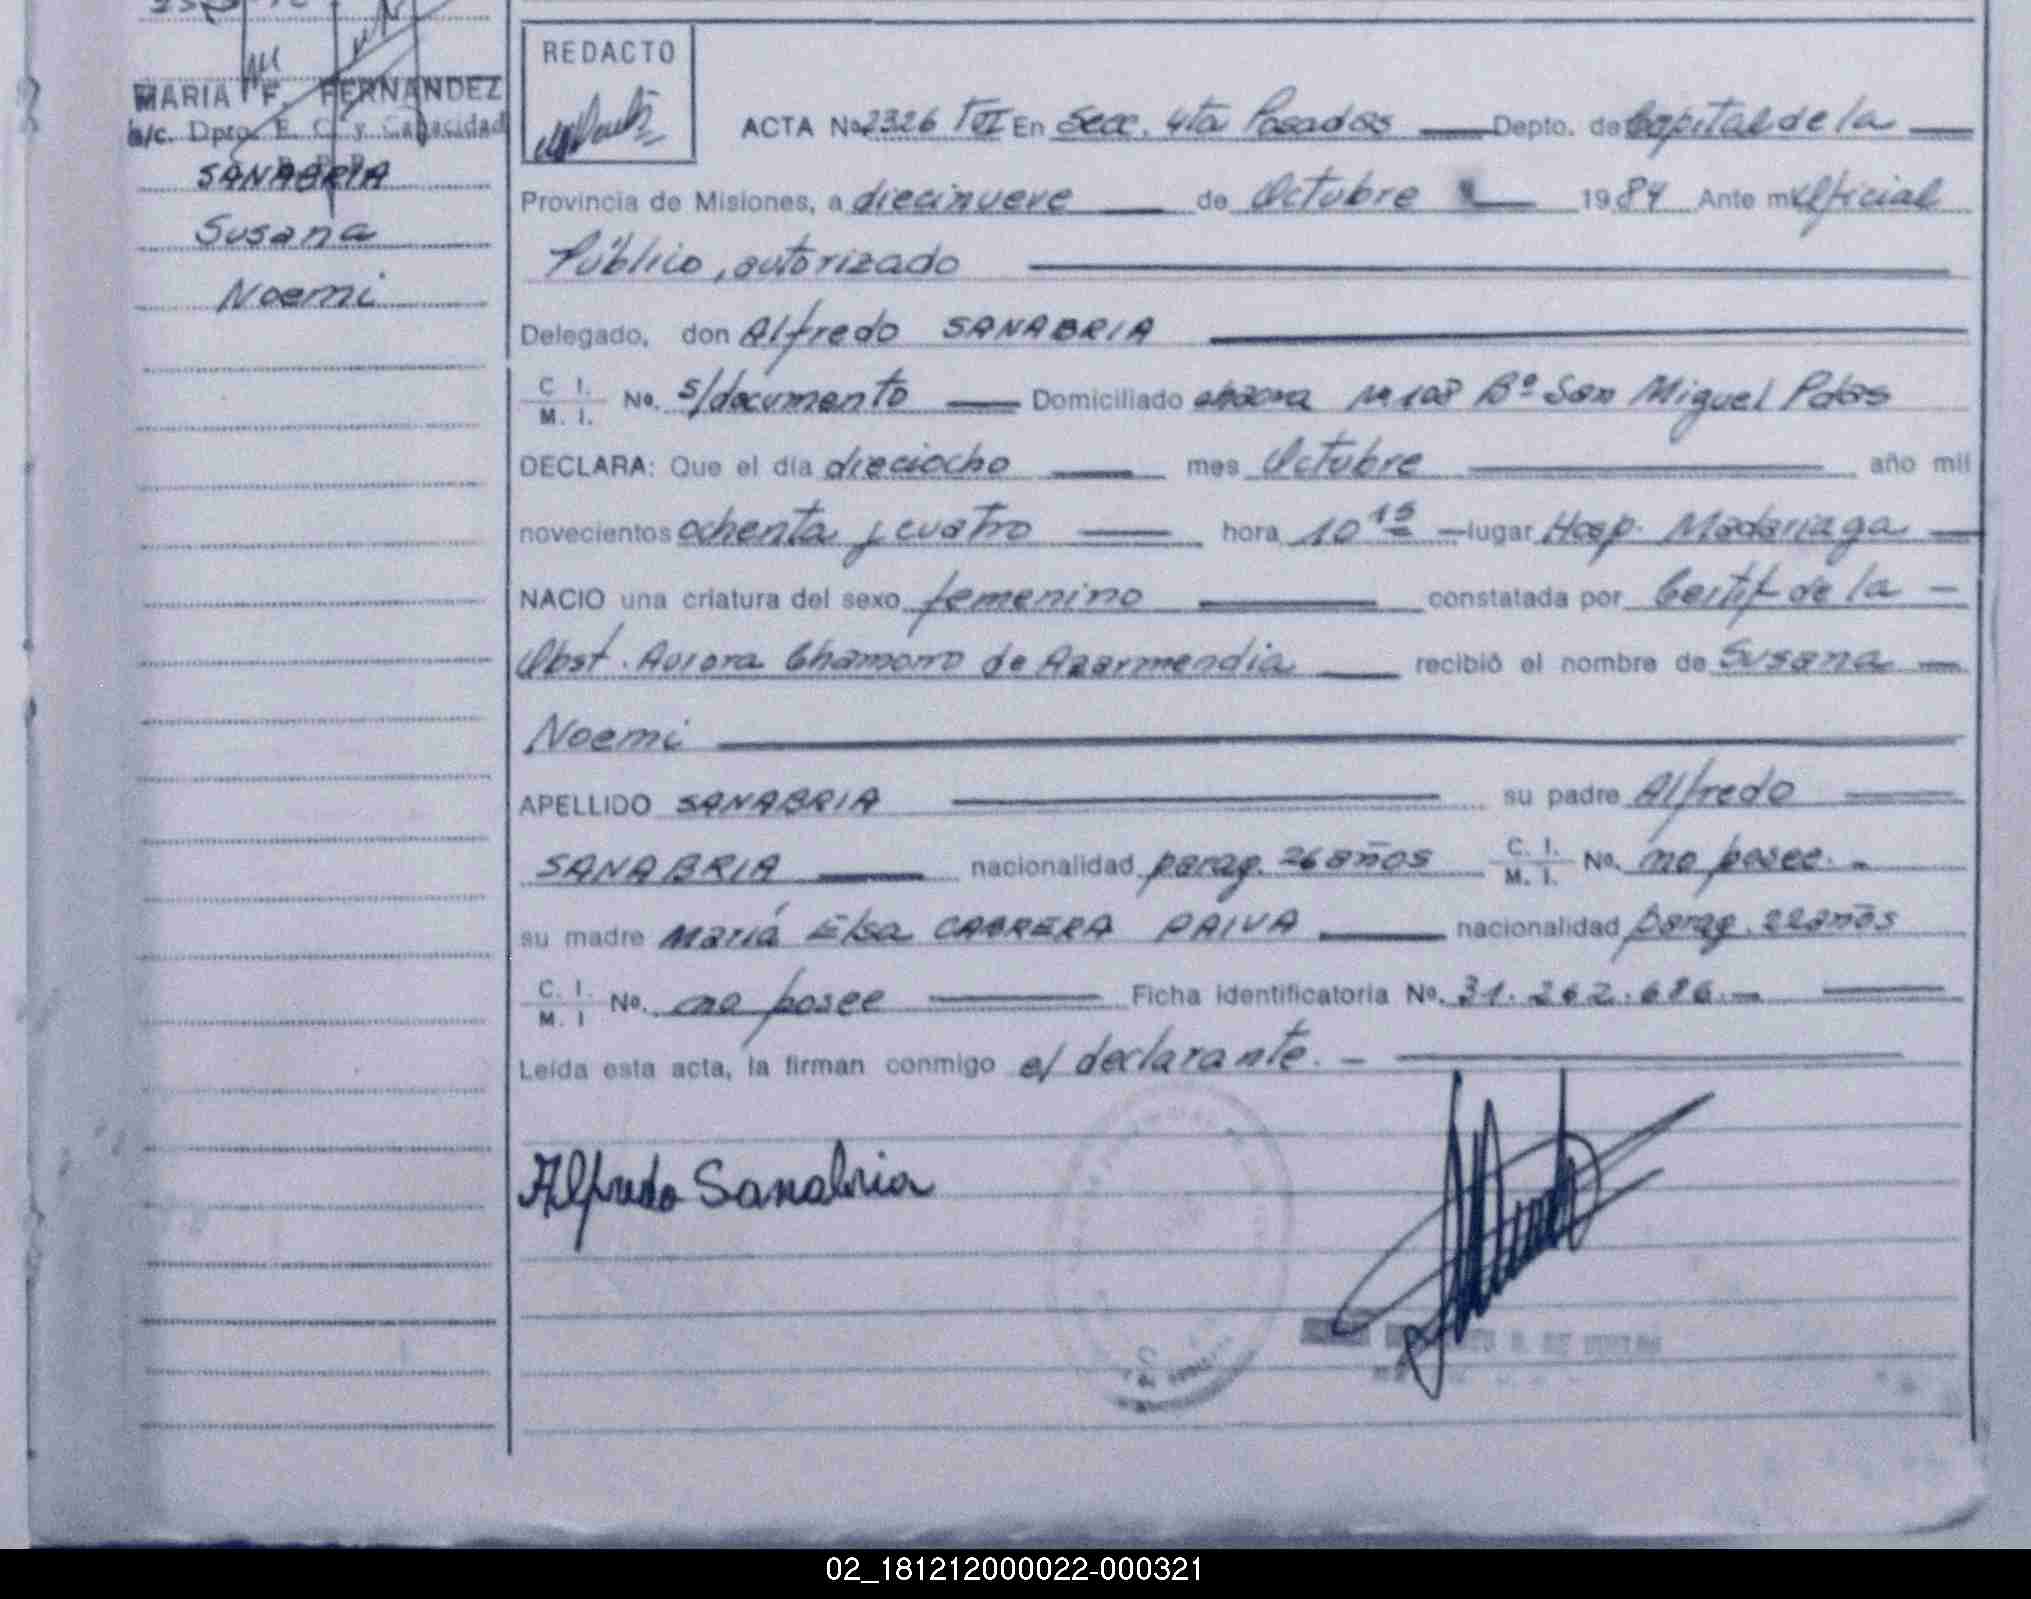 MARIA F. FERNANDEZ
a/c. Dpto. E. C. y Capacidad
SANABRIA
Susana
Noemi
REDACTO
ACTA No 2326 TVI En Secc. 4ta Posadas Depto. de Capital de la
Provincia de Misiones, a diecinueve de Octubre 1984 Ante mi Oficial
Público, autorizado
Delegado, don Alfredo SANABRIA
C. I. M. I. No. s/documento Domiciliado chacra Nº 108 Bº San Miguel Pdas
DECLARA: Que el día dieciocho mes Octubre año mil
novecientos ochenta y cuatro hora 10 15 lugar Hosp. Madariaga
NACIO una criatura del sexo femenino constatada por Certif de la
Obst. Aurora Chamorro de Azarmendia recibió el nombre de Susana
Noemi
APELLIDO SANABRIA su padre Alfredo
SANABRIA nacionalidad parag. 26 años C. I. M. I. No. no posee.
su madre María Elsa CABRERA PAIVA nacionalidad parag. 22 años
C. I. M. I No. no posee Ficha identificatoria No. 31.262.686.
Leída esta acta, la firman conmigo el declarante.
Alfredo Sanabria
02_181212000022-000321